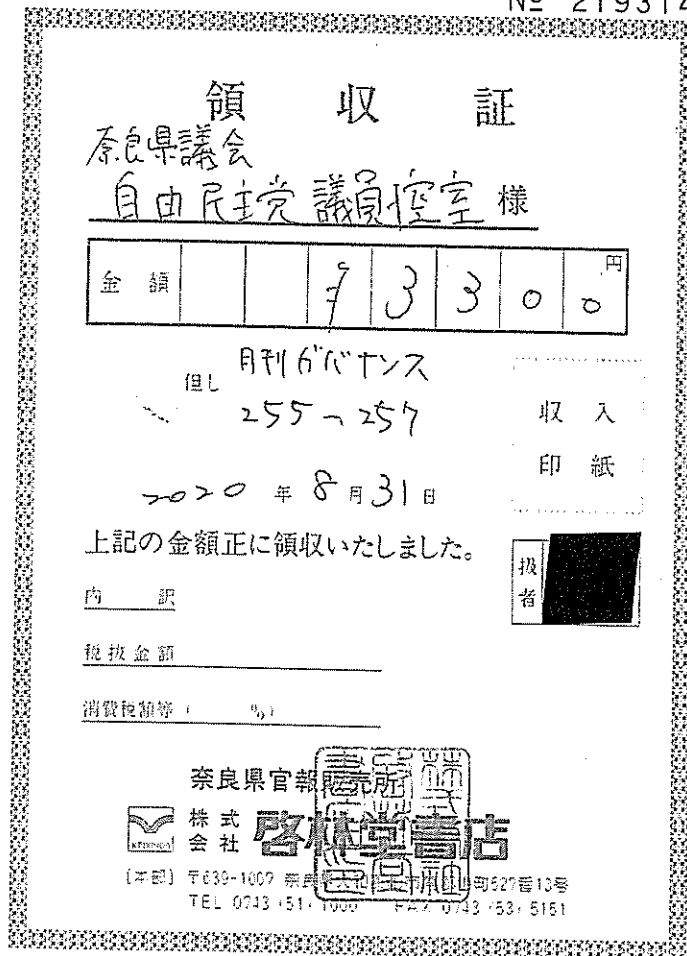 No 219314
領収証
奈良県議会
自由民主党 議員控室 様
金額 ¥3300円
但し 月刊ガバナンス
255〜257
収入
印紙
2020年8月31日
上記の金額正に領収いたしました。
扱者
内訳
税抜金額
消費税額等( %)
奈良県官報販売所
株式会社 啓林堂書店
(本部) 〒639-1007 奈良県大和郡山市南郡山町527番13号
TEL 0743(51)1000 FAX 0743(53)5151